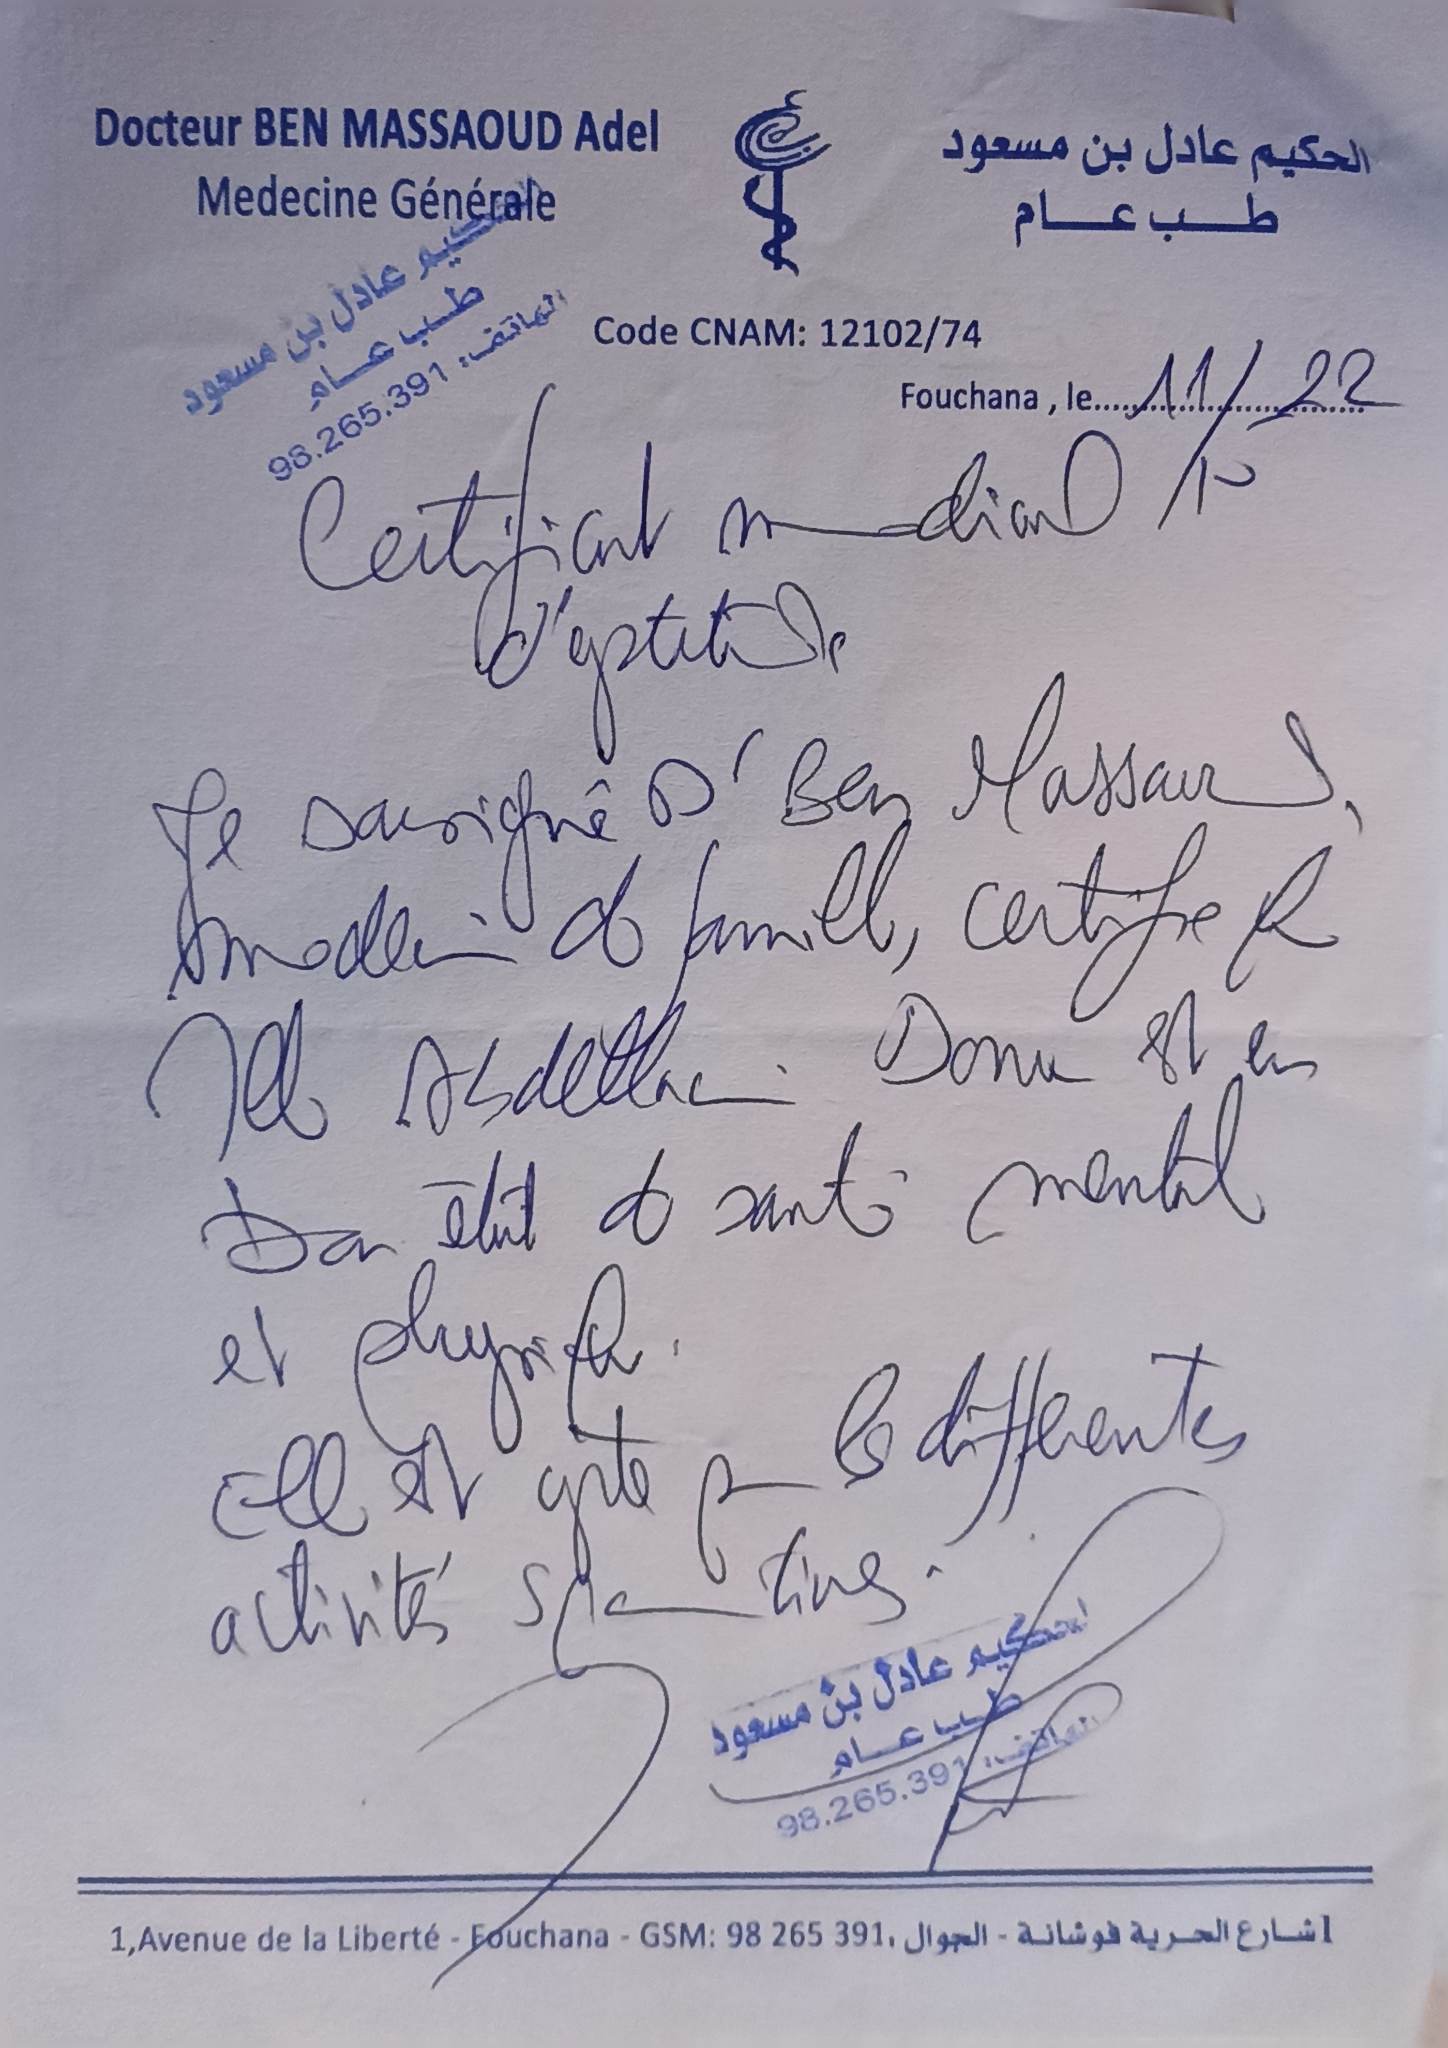 Docteur BEN MASSAOUD Adel
Medecine Générale
الحكيم عادل بن مسعود
طب عام
الحكيم عادل بن مسعود
طب عام
الهاتف: 98.265.391
Code CNAM: 12102/74
Fouchana , le 11/10/22
Certificat medical
d'aptitude
Je soussigné Dr Ben Massaoud,
medecin de famille, certifie q
Mlle Abdellaoui est en
bon état de santé mental
et physiq.
elle est apte pr les différentes
activités sportives.
الحكيم عادل بن مسعود
طب عام
الهاتف: 98.265.391
1,Avenue de la Liberté - Fouchana - GSM: 98 265 391، 1 شارع الحرية فوشانة - الجوال